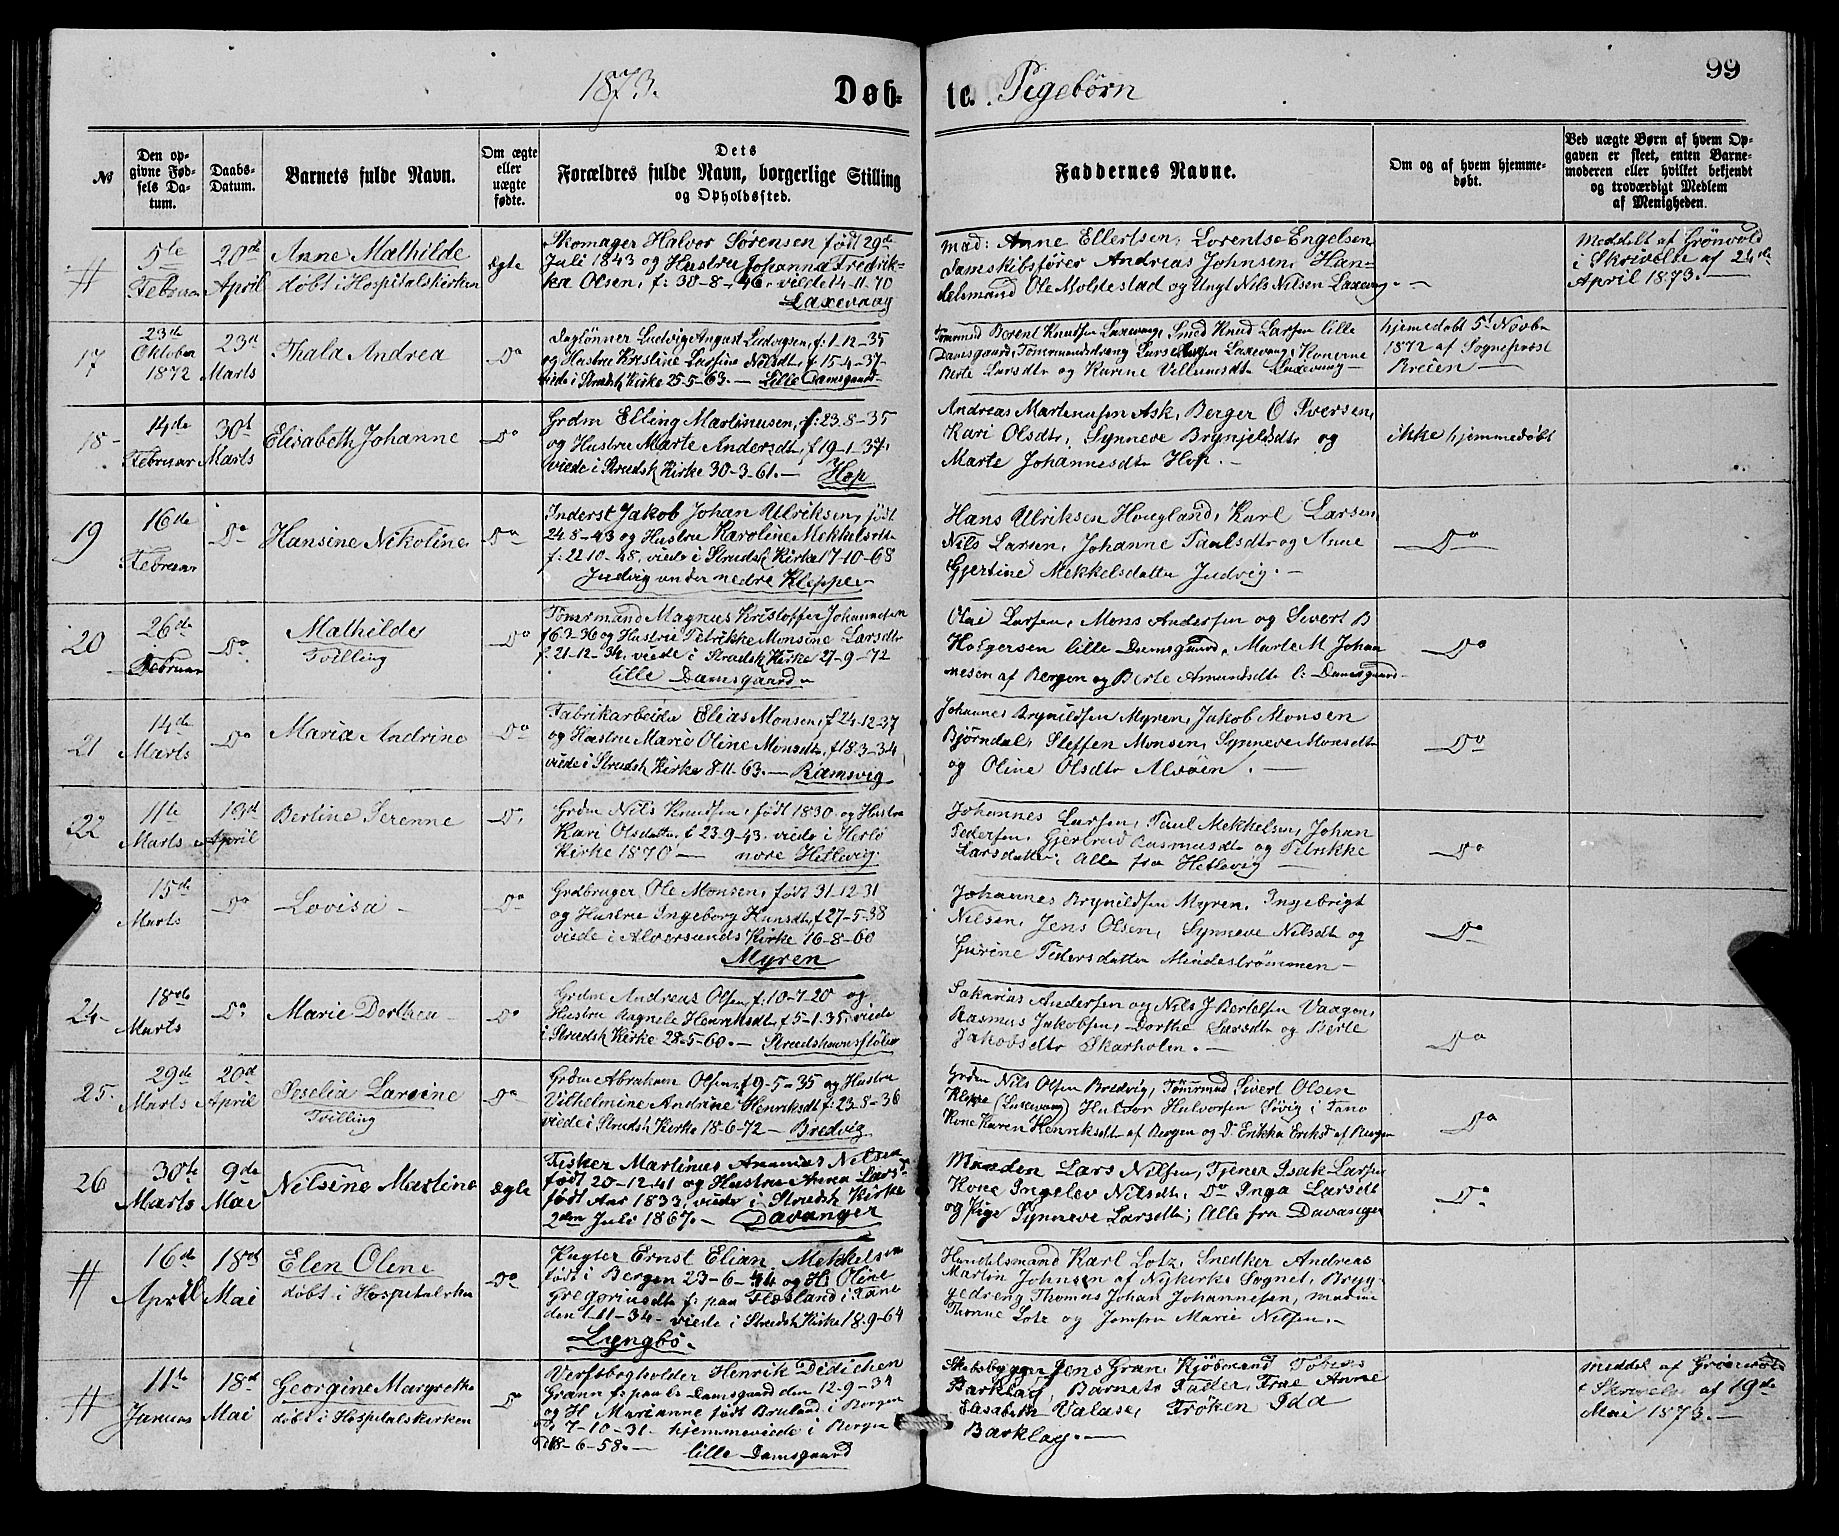 99
1873.
Døb-
te.
Pigebørn
№
Den op-
givne Fød-
sels Da-
tum.
Daabs-
Datum.
Barnets fulde Navn.
Om ægte
eller
uægte
fødte.
Dets
Forældres fulde Navn, borgerlige Stilling
og Opholdssted.
Faddernes Navne.
Om og af hvem hjemme-
døbt.
Ved uægte Børn af hvem Op-
gaven er skeet, enten Barne-
moderen eller hvilket bekjendt
og troværdigt Medlem
af Menigheden.
#
5te
Februar
20de
April
Anne Mathilde
døbt i Hospitalskirken
ægte
Skomager Halvor Sørensen født 29de
Juli 1843 og Hustru Johanna Fredrik-
ka Olsen, f: 30-8-46, viede 14-11-70
Laxevaag
Mad: Anne Ellertsen, Lorentse Engelsen
Damskibsfører Andreas Johnsen, Han-
delsmand Ole Moldestad og Ungk Nils Nilsen Laxevaag
Meddelt af Grønvold
i Skrivelse af 24de
April 1873.
17
23de
Oktober
1872
23de
Marts
Thala Andrea
Do
Daglønner Ludvig August Ludvigsen, f: 1-12-35
og Hustru Kristine Larsine Nilsdt, f 15-4-37
viede i Strudsh Kirke 25-5-63. — Lille Damsgaard
Tømmd Berent Knutsen Laxevaag, Smed Knud Larsen lille
Damsgaard, Tømmermandsdreng Laxevaag, Konerne
Berte Larsdtr og Karine Villumsdtr Laxevaag
hjemedøbt 5t Novbr
1872 af Sogneprest
Breien
18
14de
Februar
30t
Marts
Elisabeth Johanne
Do
Grdm Elling Martinusen, f: 23-8-35
og Hustru Marte Andersdt, f 19-1-37,
viede i Strudsh Kirke 30-3-61. — Hop
Andreas Martinusen Ask, Berger O Iversen,
Kari Olsdtr, Synneve Brynjelsdtr og
Marte Johannesdtr Hop.
ikke hjemmedøbt
19
16de
Februar
Do
Hansine Nikoline
Do
Inderst Jakob Johan Ulriksen, født
24-8-43 og Hustru Karoline Mekkelsdtr
f: 22-10-48, viede i Strudsh Kirke 17-10-68
Judvig under nedre Kleppe
Hans Ulriksen Hougland, Karl Larsen,
Nils Larsen, Johanne Paulsdtr og Anne
Gjertine Mekkelsdatter Judvig.
Do
20
26de
Februar
Do
Mathilde
Tvilling
Do
Tømermand Magnus Kristoffer Johannesen
f 6-2-36 og Hustru Petrikke Monsine Larsdtr
f. 21-12-34, viede i Strudsh Kirke 27-9-72
lille Damsgaard
Olai Larsen, Mons Andersen og Sivert B
Holgersen lille Damsgaard, Marte M Johan
nesen af Bergen og Berte Amundsdtr l: Damsgaard
Do
21
14de
Marts
Do
Maria Andrine
Do
Fabrikarbeider Elias Monsen, f 24-12-37
og Hustru Marie Oline Monsdt, f 18-3-34,
viede i Strudsh Kirke 8-11-63. — Ramsvig
Johannes Brynildsen Myren, Jakob Monsen
Bjørndal, Steffen Monsen, Synneve Monsdtr
og Oline Olsdtr Alvøen.
Do
22
11te
Marts
13de
April
Bertine Serenne
Do
Grdm Nils Knudsen, født 1830 og Hustru
Kari Olsdatter, f 23-9-43, viede i Herlø
Kirke 1870 — nore Hetlevig
Johannes Larsen, Paul Mekkelsen, Johan
Pedersen, Gjertrud Rasmusdtr og Petrikke
Larsdatter, Alle fra Hetlevig
Do
15de
Marts
Do
Lovisa
Do
Grdbruger Ole Monsen, født 31-12-31
og Hustru Ingeborg Hansdt, f 27-5-38
viede i Alversunds Kirke 16-8-60
Myren
Johannes Brynildsen Myren, Ingebrigt
Nilsen, Jens Olsen, Synneve Nilsdt og
Gurine Pedersdatter Mindestrømmen
Do
24
18de
Marts
Do
Marie Dorthea
Do
Grdm Andreas Olsen, f: 10-7-20 og
Hustru Ragnele Henriksdt, f 5-1-35, viede
i Strudsh Kirke 28-5-60. — Strudshavnsstølen
Sakarias Andersen og Nils J Bertelsen Vaagen,
Rasmus Jakobsen, Dorthe Larsdt og Berte
Jakobsdtr Skarholen.
Do
25
29de
Marts
20de
April
Soselia Larsine
Tvilling
Do
Grdm Abraham Olsen, f 9-5-35 og Hustru
Vilhelmine Andrine Henriksdt f: 23-8-36
viede i Strudsh Kirke 18-6-72 — Bredvig
Grdm Nils Olsen Bredvig, Tømrmd Sivert Olsen
Kleppe (Laxevaag) Halvor Halvorsen Søvig i Fane
Kone Karen Henriksdtr af Bergen og Do Erikka Eriksd af Bergen
Do
26
30te
Marts
9de
Mai
Nilsine Martine
ægte
Fisker Martinus Ananias Nilsen
født 20-12-41 og Hustru Anna Larsd
født Aar 1833, viede i Strudsh Kirke
2den Juli 1867. — Davanger
Manden Lars Nilsen, Tjener Isak Larsen
Kone Ingelev Nilsdt, Do Inga Larsdt
og Pige Synneve Larsdtr, Alle fra Davanger
Do
#
16de
April
18de
Mai
Elen Olene
døbt i Hospitalskirken
Do
Rugter Ernst Elian Mekkelsen
født i Bergen 23-6-44 og H: Oline
Gregoriusdtr f: paa Flesland i Fane
den 1-11-34 viede i Strudsh Kirke 18-9-64
Lyngbø.
Handelsmand Karl Lotz, Snedker Andreas
Martin Johnsen af Nykirks Sognet, Bryg-
gedreng Thomas Johan Johannesen, madme
Thonne Lotz og Jomfru Marie Nilsen.
#
11te
Januar
18de
Mai
Georgine Margretha
døbt i Hospitalskirken
Do
Verftsbogholder Henrik Didichen
Grann f: paa l: Damsgaard den 12-9-34
og H Marianne født Bruland i Bergen
7-10-31. hjemmeviede i Bergen
18-6-58. — lille Damsgaard
Skibsbygger Jens Gran, Kjøbmand Tobias
Barklay, Barnets Fader, Frue Anne
Elisabeth Valase, Frøken Ida
Barklay.
meddelt af Grønvold
i Skrivelse af 19de
Mai 1873.